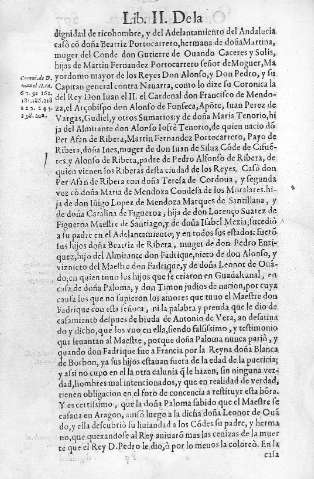 Lib. II. De la
dignidad de ricohombre, y del Adelantamiento del Andalucia
casó cõ doña Beatriz Portocarrero, hermana de doña Martina,
muger del Conde don Gutierre de Ouando Caceres y Solis,
hijas de Martin Fernandez Portocarrero señor de Moguer, Ma
yordomo mayor de los Reyes Don Alonso, y Don Pedro, y su
Capitan general contra Nauarra, como lo dize su Coronica la
del Rey Don Iuan el II. el Cardenal don Francisco de Mendo
za, el Arçobispo don Alonso de Fonseca, Iuan Perez de
Vargas, Gudiel, y otros Sumarios; y de doña Maria Tenorio, hi
ja del Almirante don Alonso Iofre Tenorio, de quien nacio dõ
Per Afan de Ribera, Martin Fernandez Portocarrero, Payo de
Ribera, doña Ines, muger de don Iuan de Silua Cõde de Cifuẽ
tes, y Alonso de Ribeta, padre de Pedro Alfonso de Ribera, de
quien vienen los Riberas desta ciudad de los Reyes. Casó don
Per Afan de Ribera con doña Teresa de Cordoua, y segunda
vez cõ doña Maria de Mendoza Condesa de los Molares, hi-
ja de don Iñigo Lopez de Mendoza Marques de Santillana, y
de doña Catalina de Figueroa, hija de don Lorenço Suarez de
Figueroa Maestre de Santiago, y de doña Isabel Mexia, sucedio
a su padre en el Adelantamiento, y en todos sus estados: fuerõ
sus hijos doña Beatriz de Ribera, muger de don Pedro Enri-
quez, hijo del Almirante don Fadrique, nieto de don Alonso, y
viznieto del Maestre don Fadrique, y de doña Leonor de Ouã-
do, en quien tuuo los hijos que se criaron en Guadalcanal, en
casa de doña Paloma, y don Timon judios de nacion, por cuya
causa los que no supieron los amores que tuuo el Maestre don
Fadrique con esta señora, ni la palabra y prenda que le dio de
casamiento despues de biuda de Antonio de Vera, an desatina
do y dicho, que los vuo en ella, siendo falsissimo, y testimonio
que leuantan al Maestre, porque doña Paloma nunca pario, y
quando don Fadrique fue a Francia por la Reyna doña Blanca
de Borbon, ya sus hijos estauan fuera de la edad de la puericia;
y assi no cupo en el la otra calunia q̃ le hazen, sin ninguna ver-
dad, hombres mal intencionados, y que en realidad de verdad,
tienen obligacion en el foro de conciencia a restituyr esta hõra.
Y es certissimo, que la doña Paloma sabido que el Maestre se
casaua en Aragon, auisó luego a la dicha doña Leonor de Ouã
do, y ella descubrio su liuiandad a los Cõdes su padre, y herma
no, que querandose al Rey auiuarõ mas las cenizas de la muer
te que el Rey D. Pedro le dio, ò por lo menos la coloreó. En la
casa